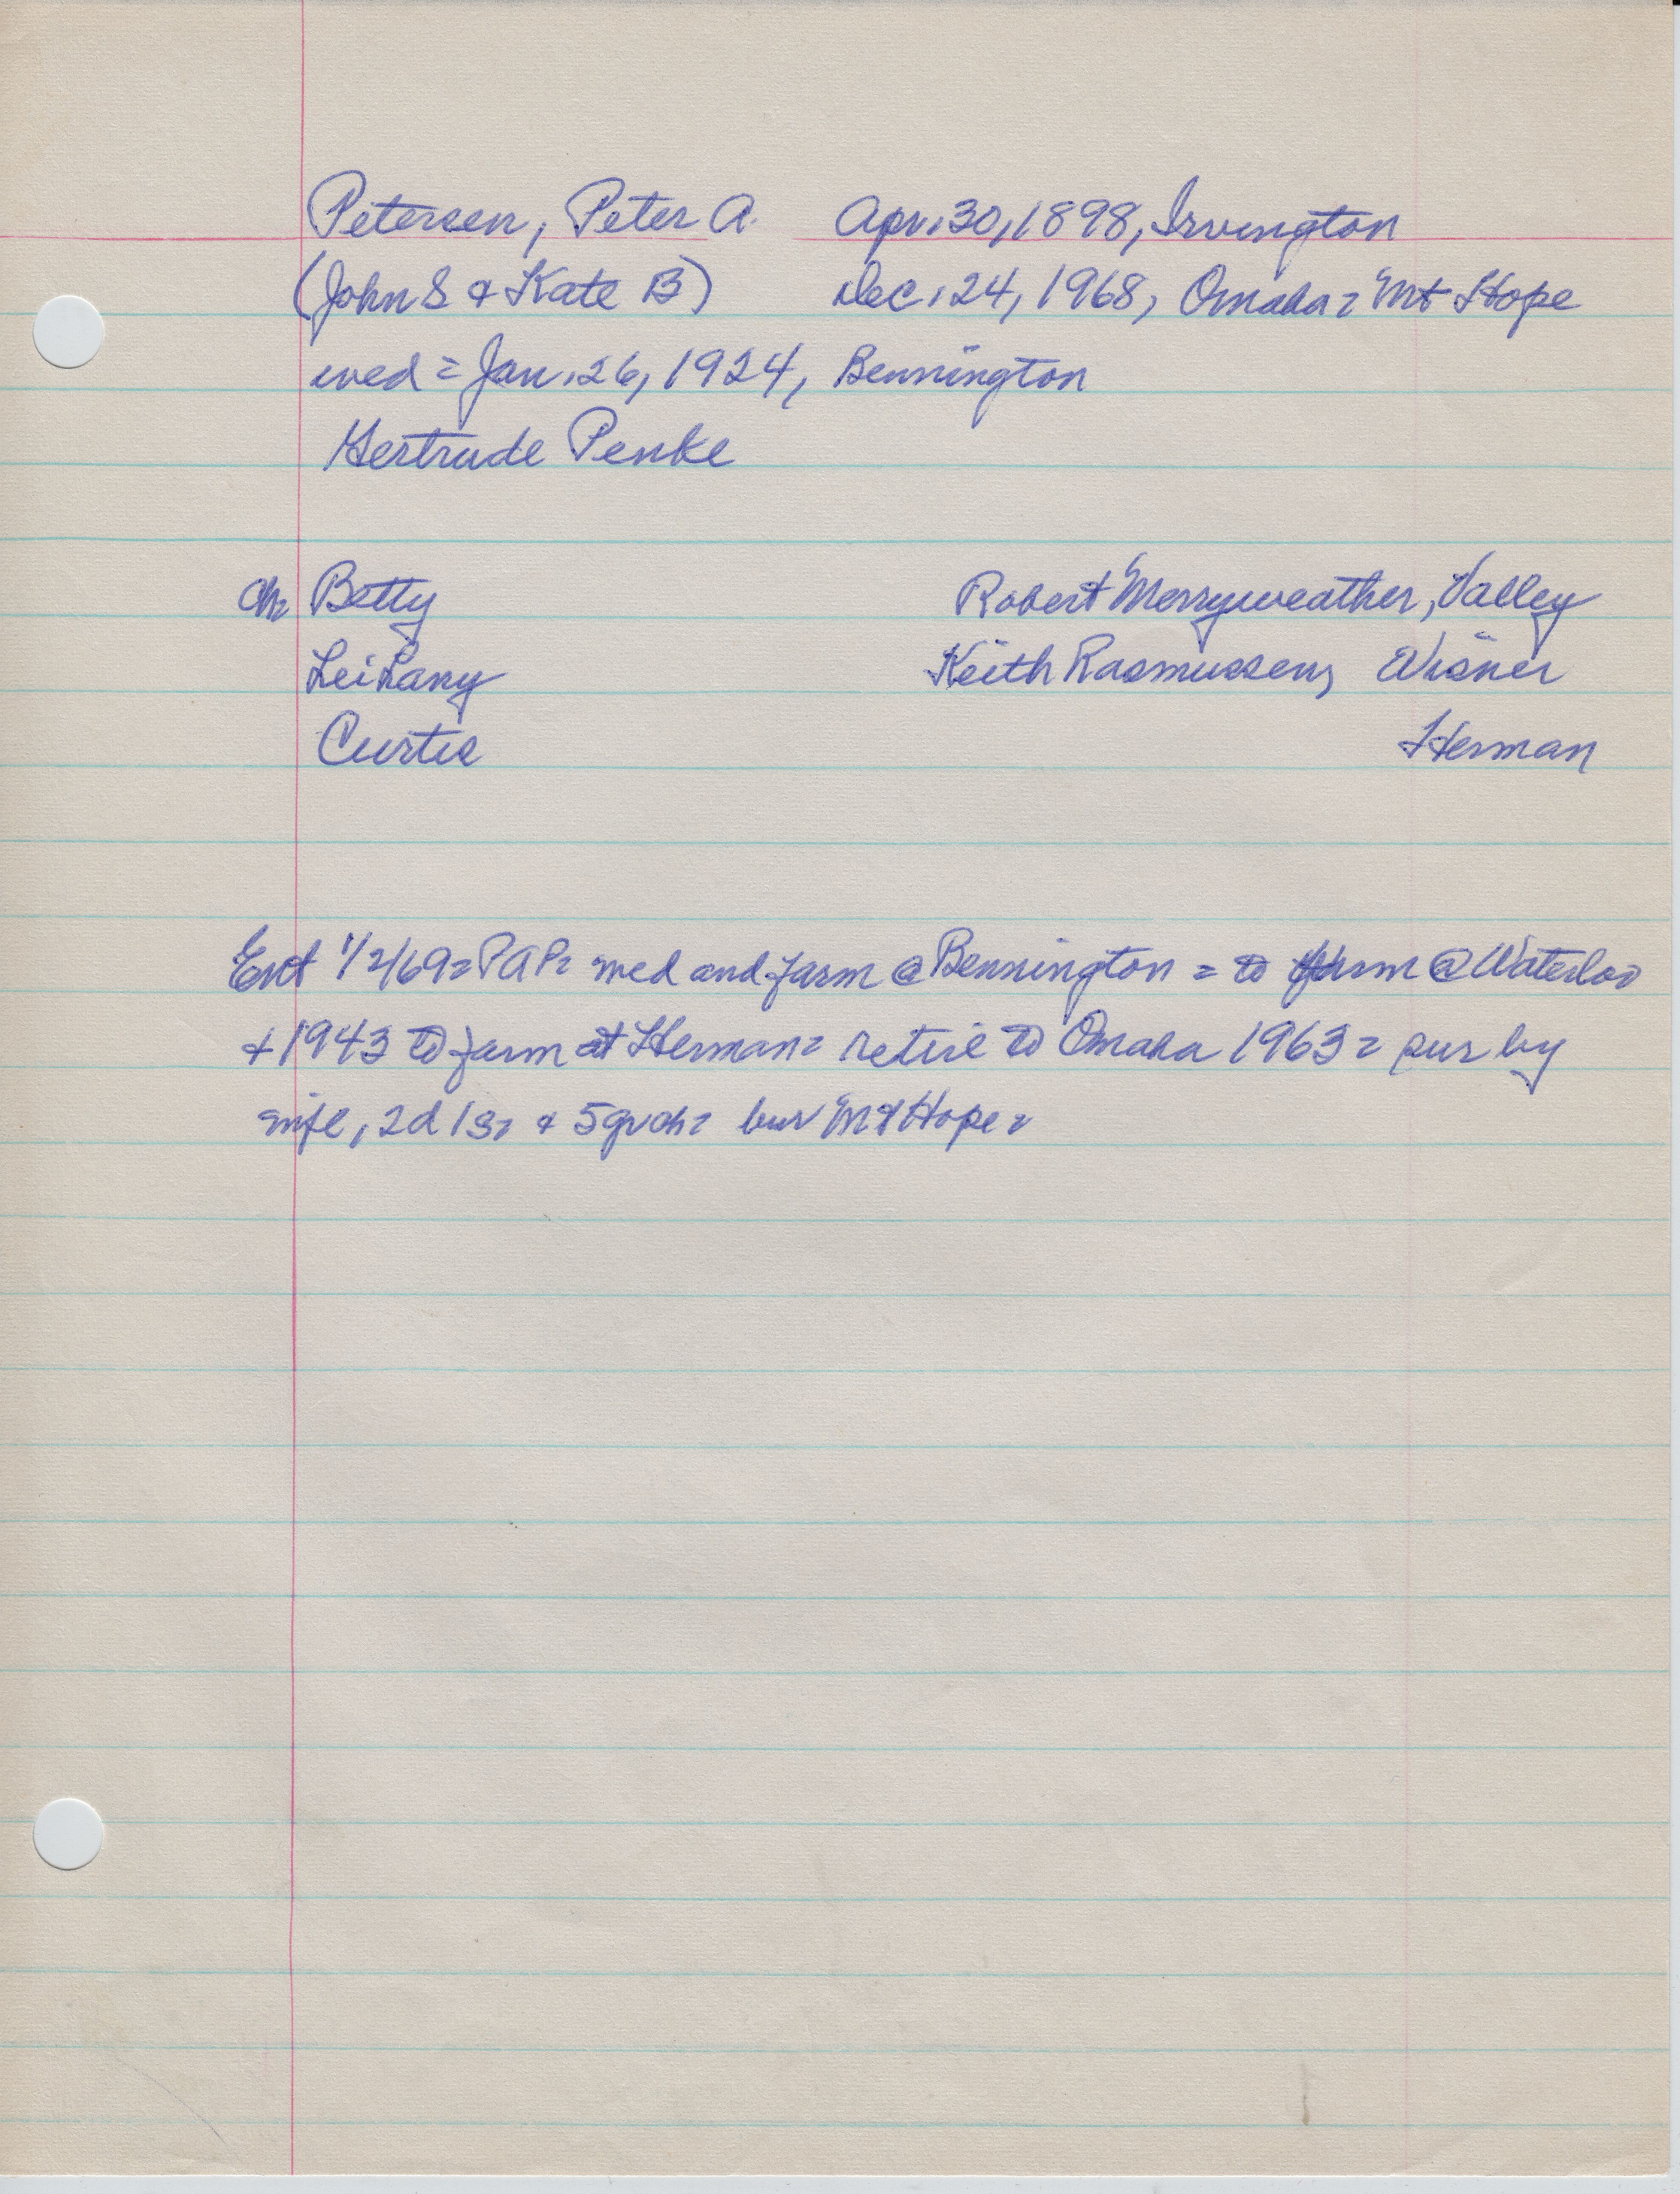 Petersen, Peter A. Apr. 30, 1898, Irvington
(John S & Kate B) Dec. 24, 1968, Omaha = Mt Hope
wed = Jan. 26, 1924, Bennington
Gertrude Penke
ch= Betty Robert Merryweather, Valley
LeiLany Keith Rasmussen, Wisner
Curtis Herman
Ent 1/2/69 = PAP = wed and farm @ Bennington = to farm @ Waterloo
+ 1943 to farm at Herman = retire to Omaha 1963 = sur by
wife, 2d 1s, + 5 grch = bur Mt Hope =